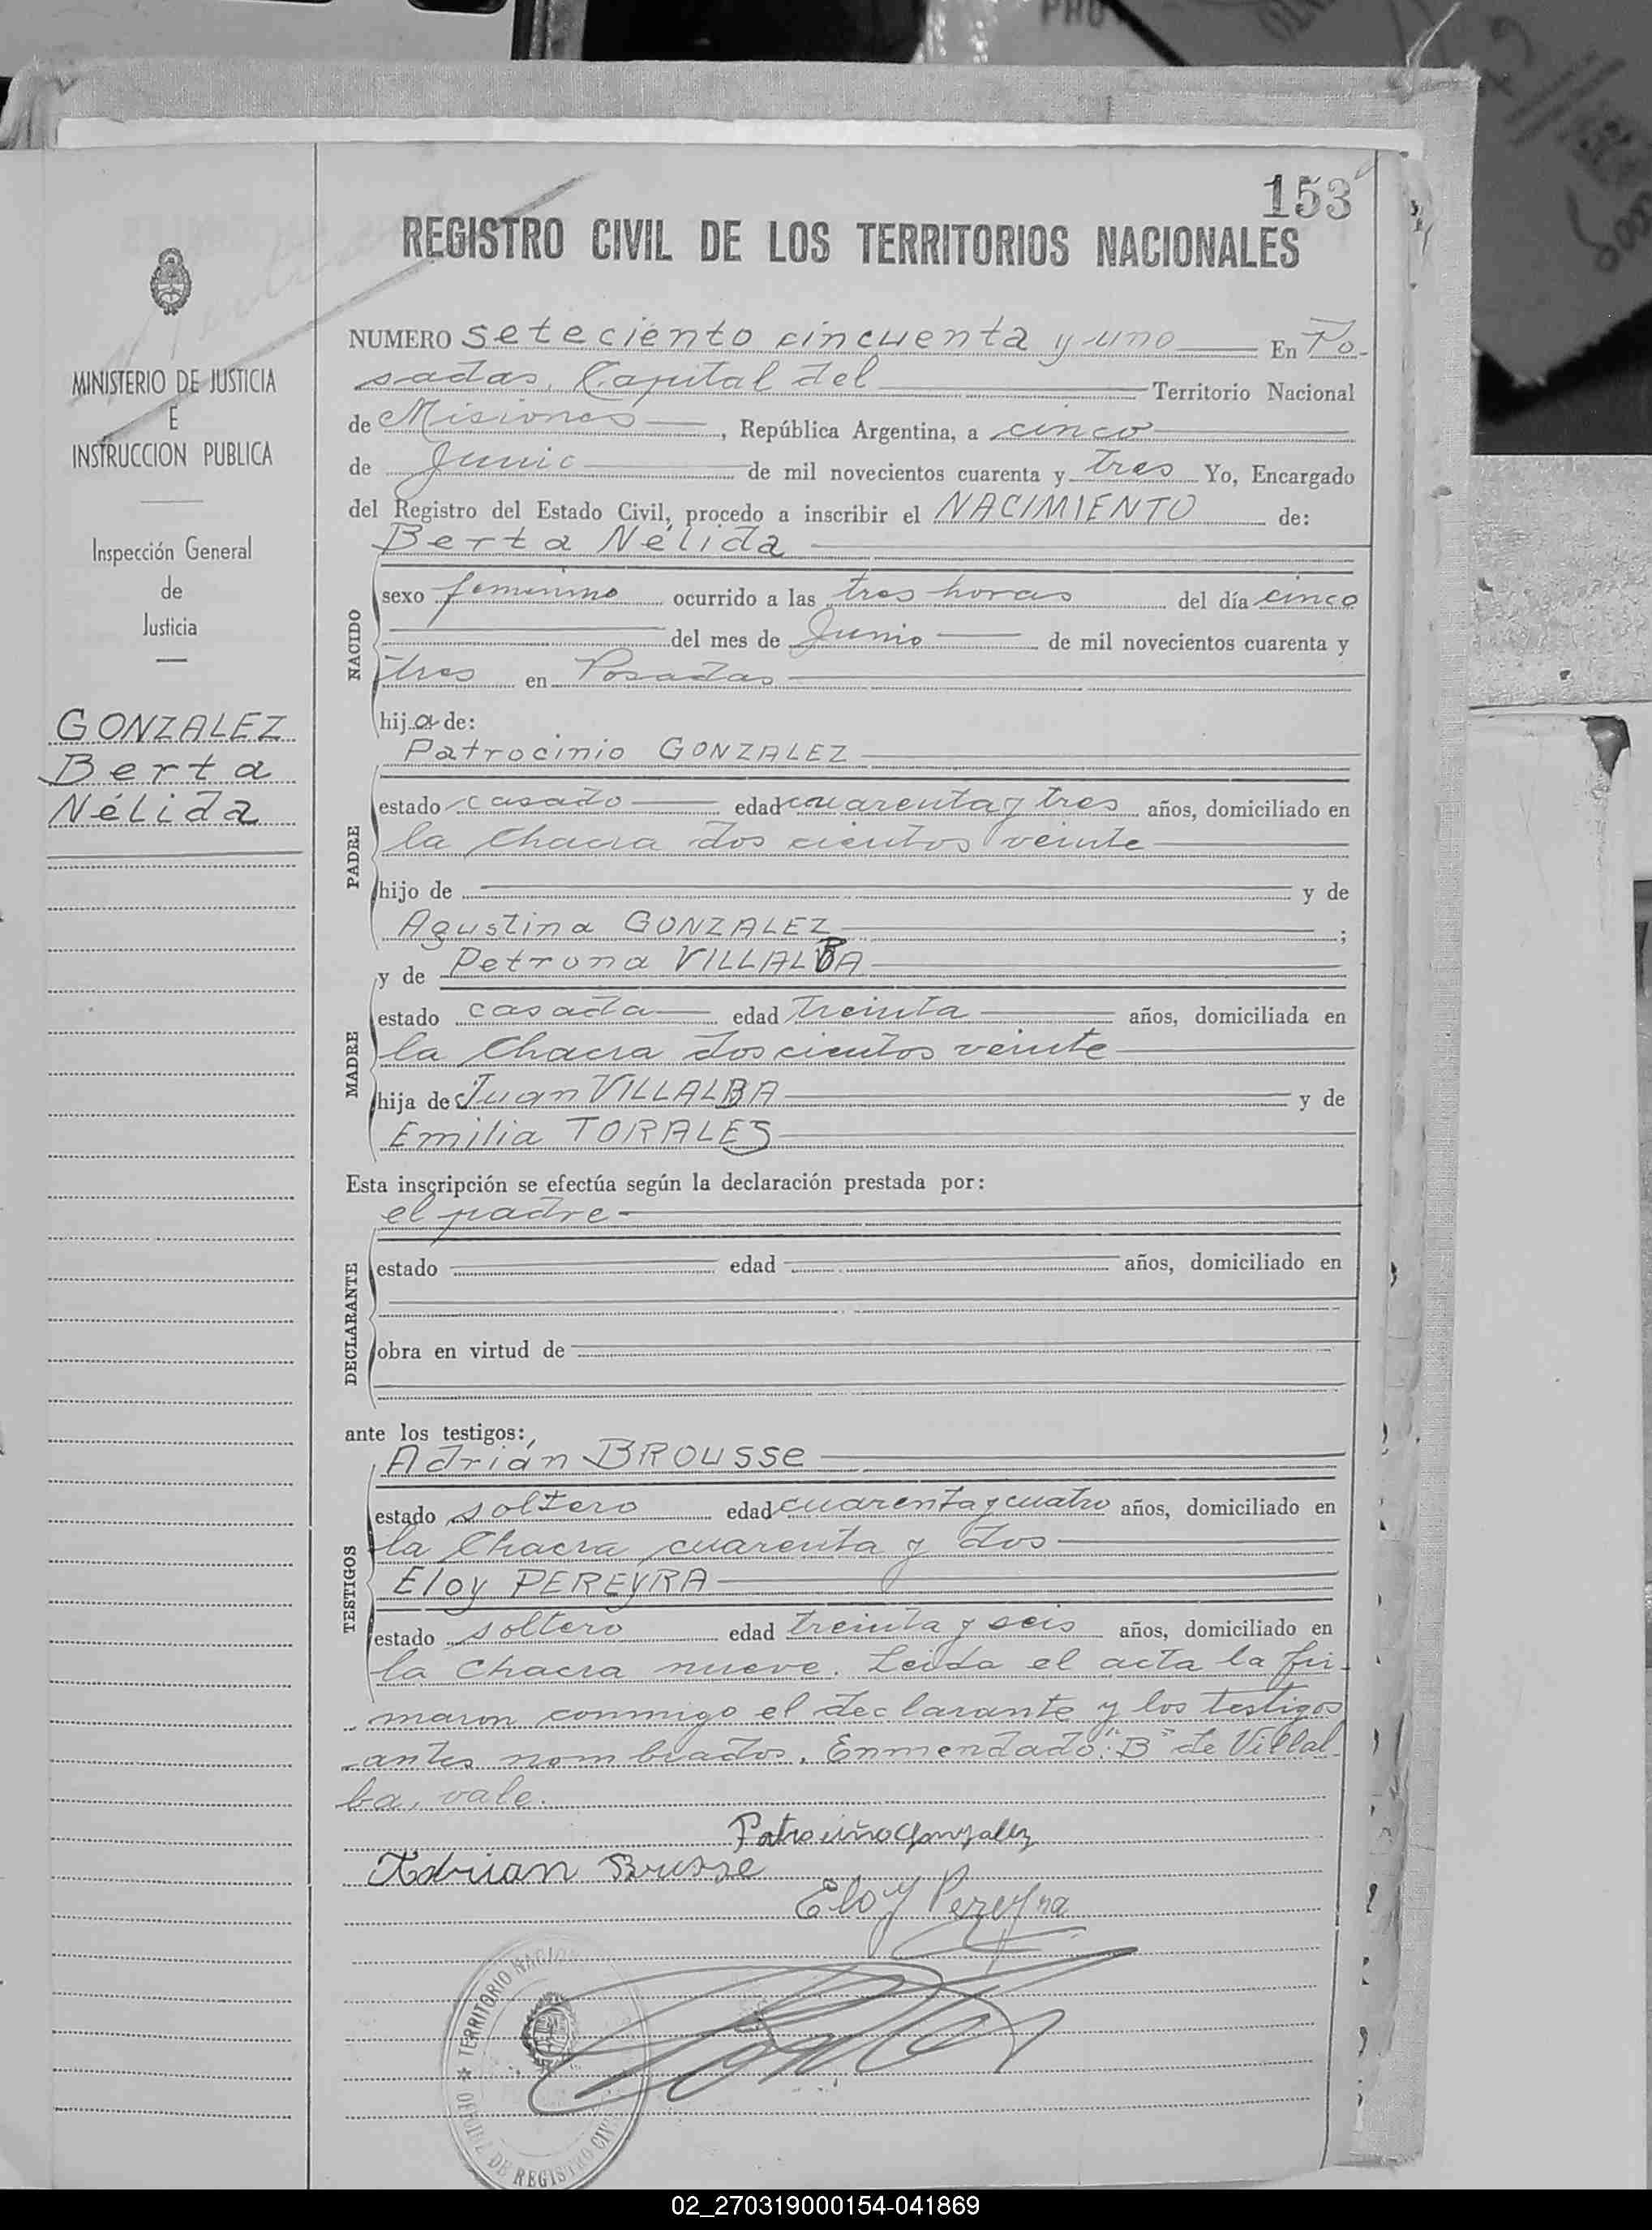 153
REGISTRO CIVIL DE LOS TERRITORIOS NACIONALES
MINISTERIO DE JUSTICIA
E
INSTRUCCION PUBLICA
Inspección General
de
Justicia
GONZALEZ
Berta
Nélida
NUMERO seteciento cincuenta y uno En Po-
sadas, Capital del Territorio Nacional
de Misiones, República Argentina, a cinco
de Junio de mil novecientos cuarenta y tres Yo, Encargado
del Registro del Estado Civil, procedo a inscribir el NACIMIENTO de:
Berta Nélida
NACIDO
sexo femenino ocurrido a las tres horas del día cinco
del mes de Junio de mil novecientos cuarenta y
tres en Posadas
hija de:
Patrocinio GONZALEZ
PADRE
estado casado edad cuarenta y tres años, domiciliado en
la Chacra dos cientos veinte
hijo de y de
Agustina GONZALEZ ;
y de Petrona VILLALBA
MADRE
estado casada edad treinta años, domiciliada en
la Chacra doscientos veinte
hija de Juan VILLALBA y de
Emilia TORALES
Esta inscripción se efectúa según la declaración prestada por:
el padre-
DECLARANTE
estado edad años, domiciliado en
obra en virtud de
ante los testigos:
Adrián BROUSSE
TESTIGOS
estado soltero edad cuarenta y cuatro años, domiciliado en
la Chacra cuarenta y dos
Eloy PEREYRA
estado soltero edad treinta y seis años, domiciliado en
la Chacra nueve. Leida el acta la fir-
maron conmigo el declarante y los testigos
antes nombrados. Enmendado: "B" de Villal-
ba, vale.
Patrociño Gonzalez
Adrian Brusse
Eloy Pereyra
TERRITORIO NACION
OFICINA DE REGISTRO CIVIL
02_270319000154-041869